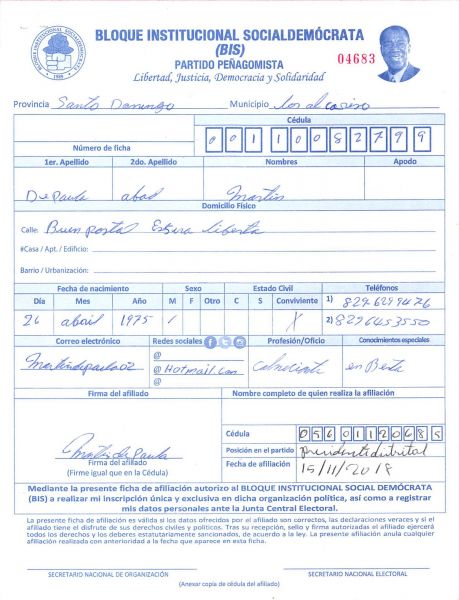 BLOQUE INSTITUCIONAL SOCIALDEMÓCRATA
(BIS)
PARTIDO PEÑAGOMISTA
04683
Libertad, Justicia, Democracia y Solidaridad
Provincia Santo Domingo Municipio
Cédula
Número de ficha 00110082799
1er. Apellido 2do. Apellido Nombres Apodo
De paula abad Martin
Domicilio Físico
Calle:
#Casa / Apt. / Edificio:
Barrio / Urbanización:
Fecha de nacimiento Sexo Estado Civil Teléfonos
Día Mes Año M F Otro C S Conviviente 1) 829 629 9476
26 abril 1975 / X 2) 829 645 3550
Correo electrónico Redes sociales Profesión/Oficio Conocimientos especiales
@
Martindepaula02 @ Hotmail.com
@
Firma del afiliado Nombre completo de quien realiza la afiliación
Cédula 05601120685
Martin de Paula Posición en el partido
Firma del afiliado Fecha de afiliación 15/11/2018
(Firme igual que en la Cédula)
Mediante la presente ficha de afiliación autorizo al BLOQUE INSTITUCIONAL SOCIAL DEMÓCRATA
(BIS) a realizar mi inscripción única y exclusiva en dicha organización política, así como a registrar
mis datos personales ante la Junta Central Electoral.
La presente ficha de afiliación es válida si los datos ofrecidos por el afiliado son correctos, las declaraciones veraces y si el
afiliado tiene el disfrute de sus derechos civiles y políticos. Tras su recepción, sello y firma autorizadas el afiliado ejercerá
todos los derechos y los deberes estatutariamente sancionados, de acuerdo a la ley. La presente afiliación anula cualquier
afiliación realizada con anterioridad a la fecha que aparece en esta ficha.
SECRETARIO NACIONAL DE ORGANIZACIÓN SECRETARIO NACIONAL ELECTORAL
(Anexar copia de cédula del afiliado)